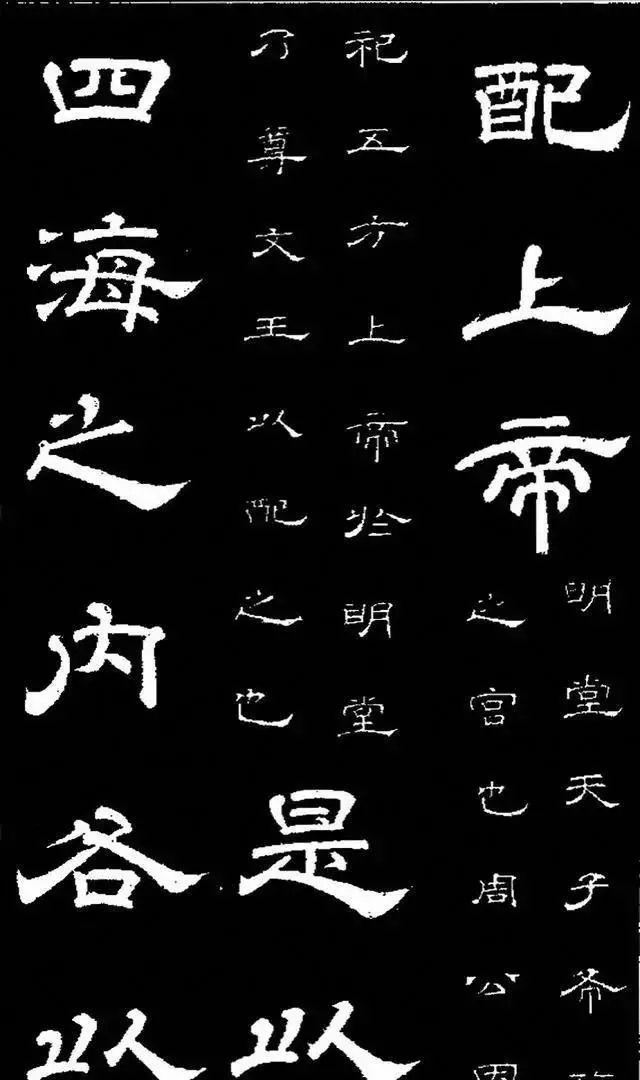 配上帝
明堂天子布
之宮也周公
祀五方上帝於明堂
乃尊文王以配之也
是以
四海之內各以